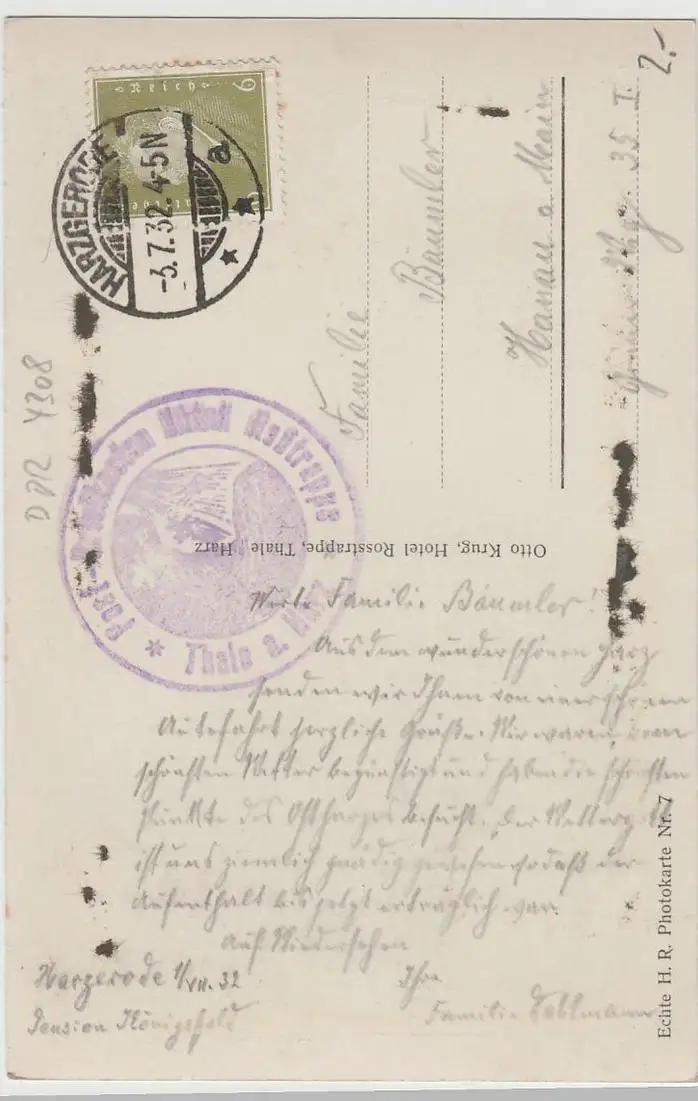 2.-
6
HARZGERODE
-3.7.32. 4-5N
a
Familie
Bäumler
Hanau a Main
35 I.
DDR 4308
Post- Hotel Roßtrappe
Thale a. Harz
Otto Krug, Hotel Rosstrappe, Thale Harz
Werte Familie Bäumler!
Aus dem wunderschönen Harz
senden wir Ihnen von einer schönen
Autofahrt herzliche Grüße. Wir waren vom
schönsten Wetter begünstigt und haben die schönsten
Punkte des Ostharzes besucht. Der Wettergott
ist uns ziemlich gnädig gewesen sodaß der
Aufenthalt bis jetzt erträglich war.
Auf Wiedersehen
Ihre
Familie
Harzgerode 1/VII. 32
Pension Königsfeld
Echte H. R. Photokarte Nr. 7